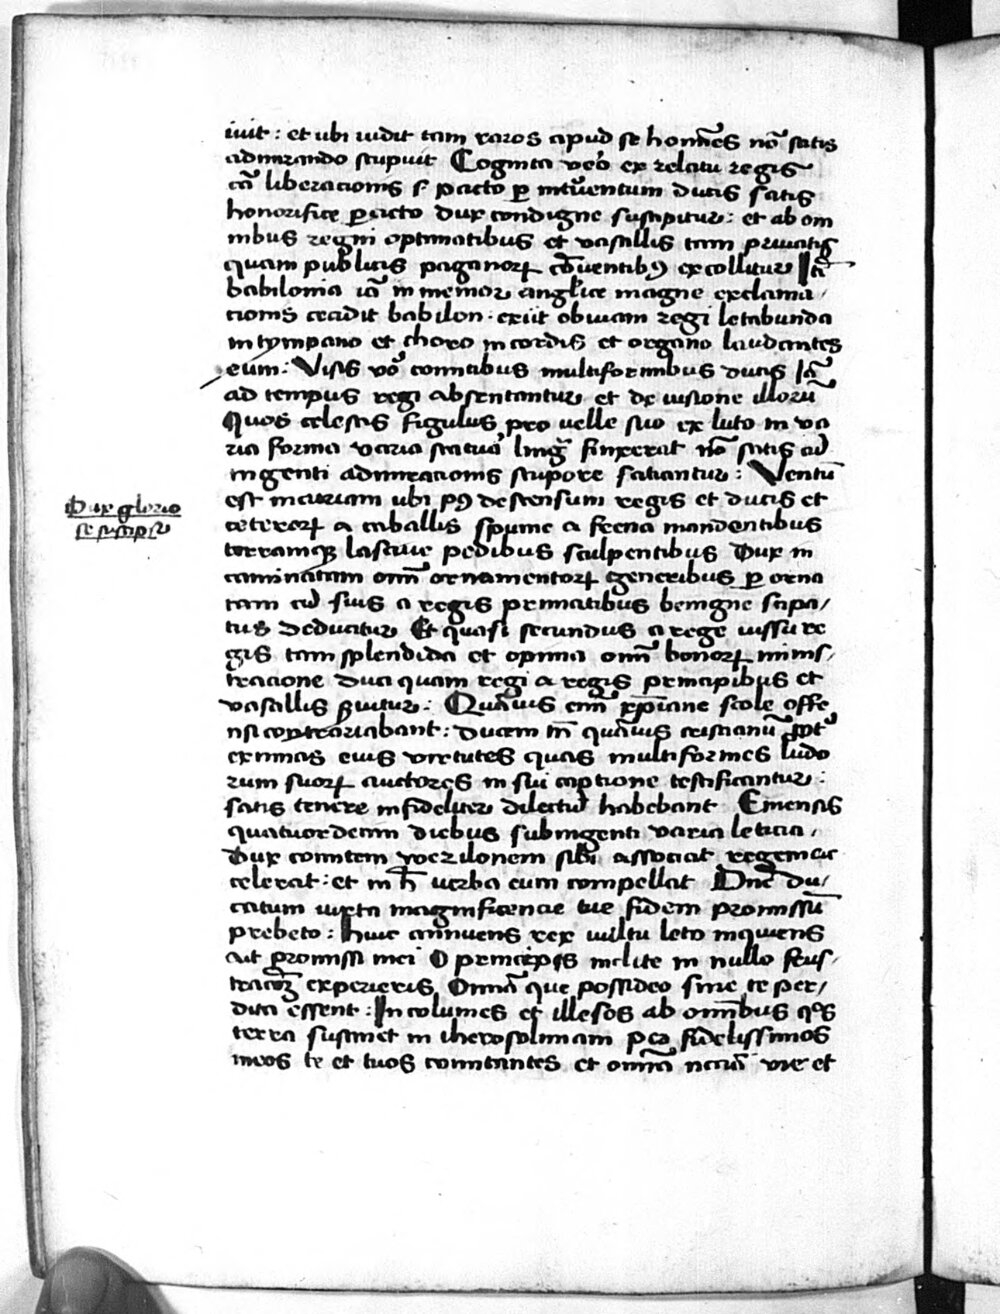 iuit : et ubi uidit tam raros apud se homīes nō satis
admirando stupuit Cognita vero ex relatu regis
cā liberacionis s pacto per intuentum ducis satis
honorifice peracto dux condigne suscipitur : et ab om
nibus regni optimatibus et vasallis tam priuatis
quam publicis paganorꝝ cōuentibꝯ excollitur In
babilonia iā in memor anglice magne exclama /
cionis cecidit babilon : exiit obuiam regi letabunda
in tympano et choro in cordis et organo laudantes
eum : Visis vō comitibus multiformibus ducis
ad tempus regi absentantur et de uisione illorū
Quos celestis figulus pro uelle suo ex luto in va
ria forma varia statura finxerat nō satis ad
ingenti admiracionis stupore saciantur : Ventū
est in curiam ubi pꝯ descensum regis et ducis et
ceterorꝝ a caballis spume a frena mandentibus
terramqꝫ lasciue pedibus sculpentibus Dux in
caminatam omī ornamentorꝝ generibus perorna
tam cū suis a regis primatibus benigne stipa /
tus deducitur Et quasi secundus a rege iussu re
gis tam splendida et opima omī bonorꝝ minis /
tracione duci quam regi a regis principibus et
vasallis seruitur : Quāuis enī xpiane scole offe
nsi contrariabant : ducem tn̄ quāuis cristianū ppt
eximias eius virtutes quas multiformes ludo
rum suorꝝ auctores in sui captione testificantur :
satis tenere infideliter dilectū habebant Emensis
quatuordecim diebus sub ingenti varia leticia .
Dux comitem veczilonem sibi associat regem ac
celerat : et in h̄ verba eum compellat Dn̄e du /
catum iuxta magnificencie tue fidem promissū
prebeto : Huic annuens rex uultu leto inquiens
ait promissi mei O princeps inclite in nullo frus /
tracōꝫ experieris Omīa que possideo sine te per /
dita essent : Incolumes et illesos ab omībus qos
terra sustinet in iherosolimam per fidelissimos
meos te et tuos comitantes et omīa n̄cia vie et
Dux glorio
se suscipitur